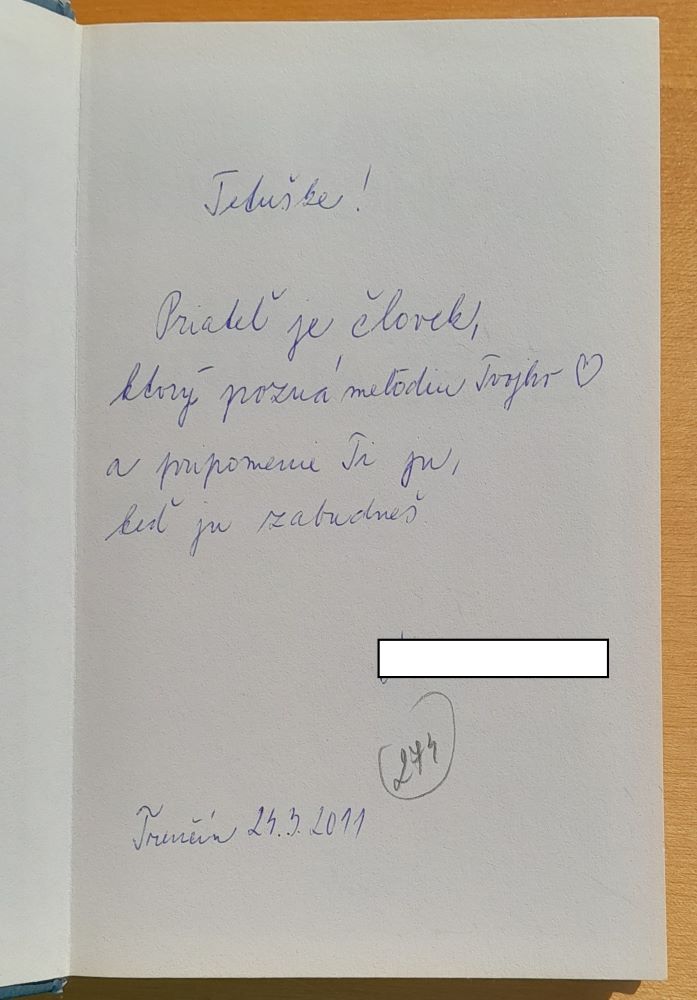 Teduške!
Priateľ je človek,
ktorý pozná melódiu Tvojho ♡
a pripomenie Ti ju,
keď ju zabudneš
274
Trenčín 24.3.2011